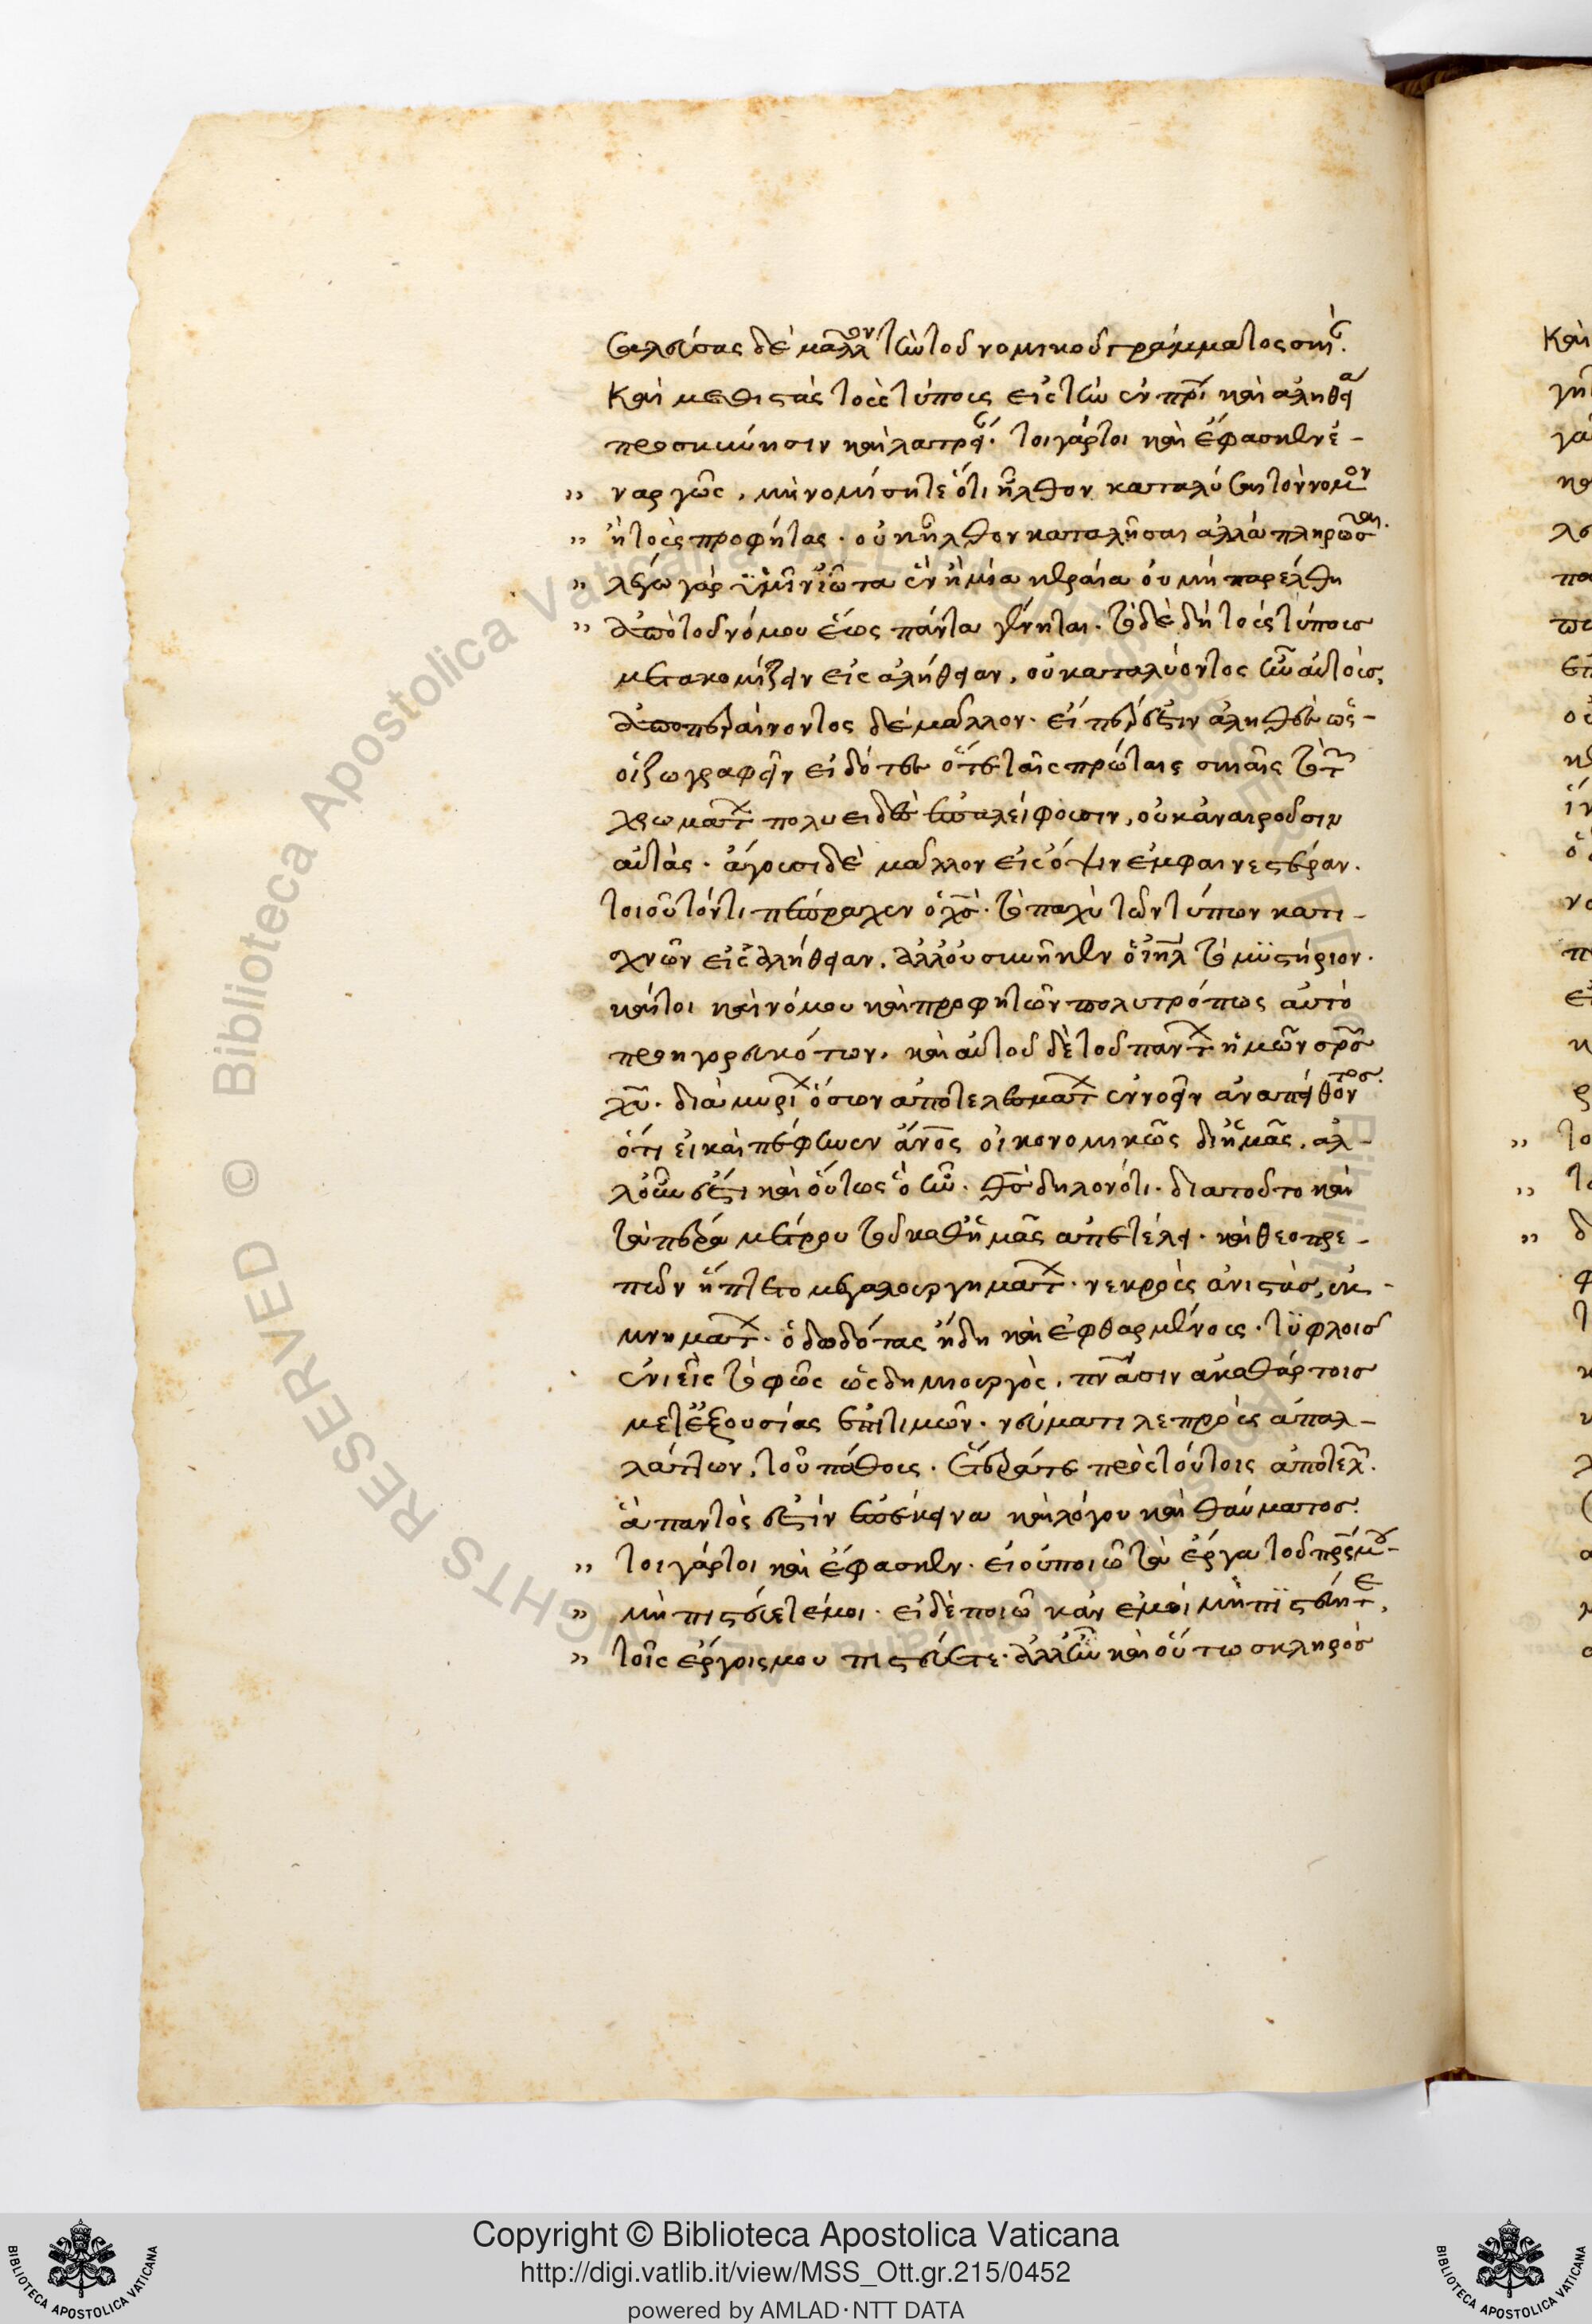 σαλεύσας δὲ μᾶλλον τὴν τοῦ νομικοῦ γράμματος σκιάν.
Καὶ μεθιστὰς τοὺς τύπους εἰς τὴν ἐν πνι καὶ ἀληθεία
προσκύνησιν καὶ λατρείαν. τοιγάρτοι καὶ ἔφασκεν ἐ-
" ναργῶς, μὴ νομίσητε ὅτι ἦλθον καταλύσαι τὸν νόμον
" ἢ τοὺς προφήτας. οὐκ ἦλθον καταλῦσαι ἀλλὰ πληρῶσαι.
" λέγω γὰρ ὑμῖν ἰῶτα ἓν ἢ μία κεραία οὐ μὴ παρέλθη
" ἀπὸ τοῦ νόμου ἕως πάντα γένηται. τὸ δὲ δὴ τοὺς τύπους
μετακομίζειν εἰς ἀλήθειαν, οὐ καταλύοντος ἦν αὐτοὺς,
ἀποπεραίνοντος δὲ μᾶλλον. εἴπερ ἐστὶν ἀληθὲς ὡς
οἱ ζωγραφεῖν εἰδότες ὅτε ταῖς πρώταις σκιαῖς τὸ τῶν
χρωμάτων πολυειδὲς ἐπαλείφουσιν, οὐκ ἀναιροῦσιν
αὐτὰς. ἄγουσι δὲ μᾶλλον εἰς ὄψιν ἐμφαινεστέραν.
τοιοῦτόν τι πέπραχεν ὁ χς. τὸ παχὺ τῶν τύπων κατι-
σχνῶν εἰς ἀλήθειαν. ἀλλ' οὐ συνῆκεν ὁ ιηλ τὸ μυστήριον.
καίτοι καὶ νόμου καὶ προφητῶν πολυτρόπως αὐτὸ
προηγορευκότων, καὶ αὐτοῦ δὲ τοῦ πάντων ἡμῶν σρς
χυ. διὰ μυρίων ὅσων ἀποτελεσμάτων ἐννοεῖν ἀναπείθοντος.
ὅτι εἰ καὶ πέφηνεν ανος οἰκονομικῶς δι' ἡμᾶς, ἀλ-
λ' οὖν ἐστι καὶ οὕτως ὃ ἦν. θς δηλονότι. διὰ τοῦτο καὶ
τὰ πέρα μέτρου τοῦ καθ' ἡμᾶς ἀπετέλει. καὶ θεοπρε-
πῶν ἥπτετο μεγαλουργημάτων. νεκροὺς ἀνιστὰς, ἐκ
μνημάτων. ὀδωδότας ἤδη καὶ ἐφθαρμένους. τυφλοῖς
ἐνιεὶς τὸ φῶς ὡς δημιουργὸς. πνασιν ἀκαθάρτοις
μετ' ἐξουσίας ἐπιτιμῶν. νεύματι λεπροὺς ἀπαλ-
λάττων, τοῦ πάθους. ἕτερά τε πρὸς τούτοις ἀποτελῶν.
ἃ παντὸς ἐστὶν ἐπέκεινα καὶ λόγου καὶ θαύματος.
" τοιγάρτοι καὶ ἔφασκεν. εἰ οὐ ποιῶ τὰ ἔργα τοῦ πρς μου
" μὴ πιστεύετέ μοι. εἰ δὲ ποιῶ κἂν ἐμοὶ μὴ πιστεύητε,
" τοῖς ἔργοις μου πιστεύετε. ἀλλ' ἦν καὶ οὕτω σκληρὸς
Copyright © Biblioteca Apostolica Vaticana
http://digi.vatlib.it/view/MSS_Ott.gr.215/0452
powered by AMLAD·NTT DATA